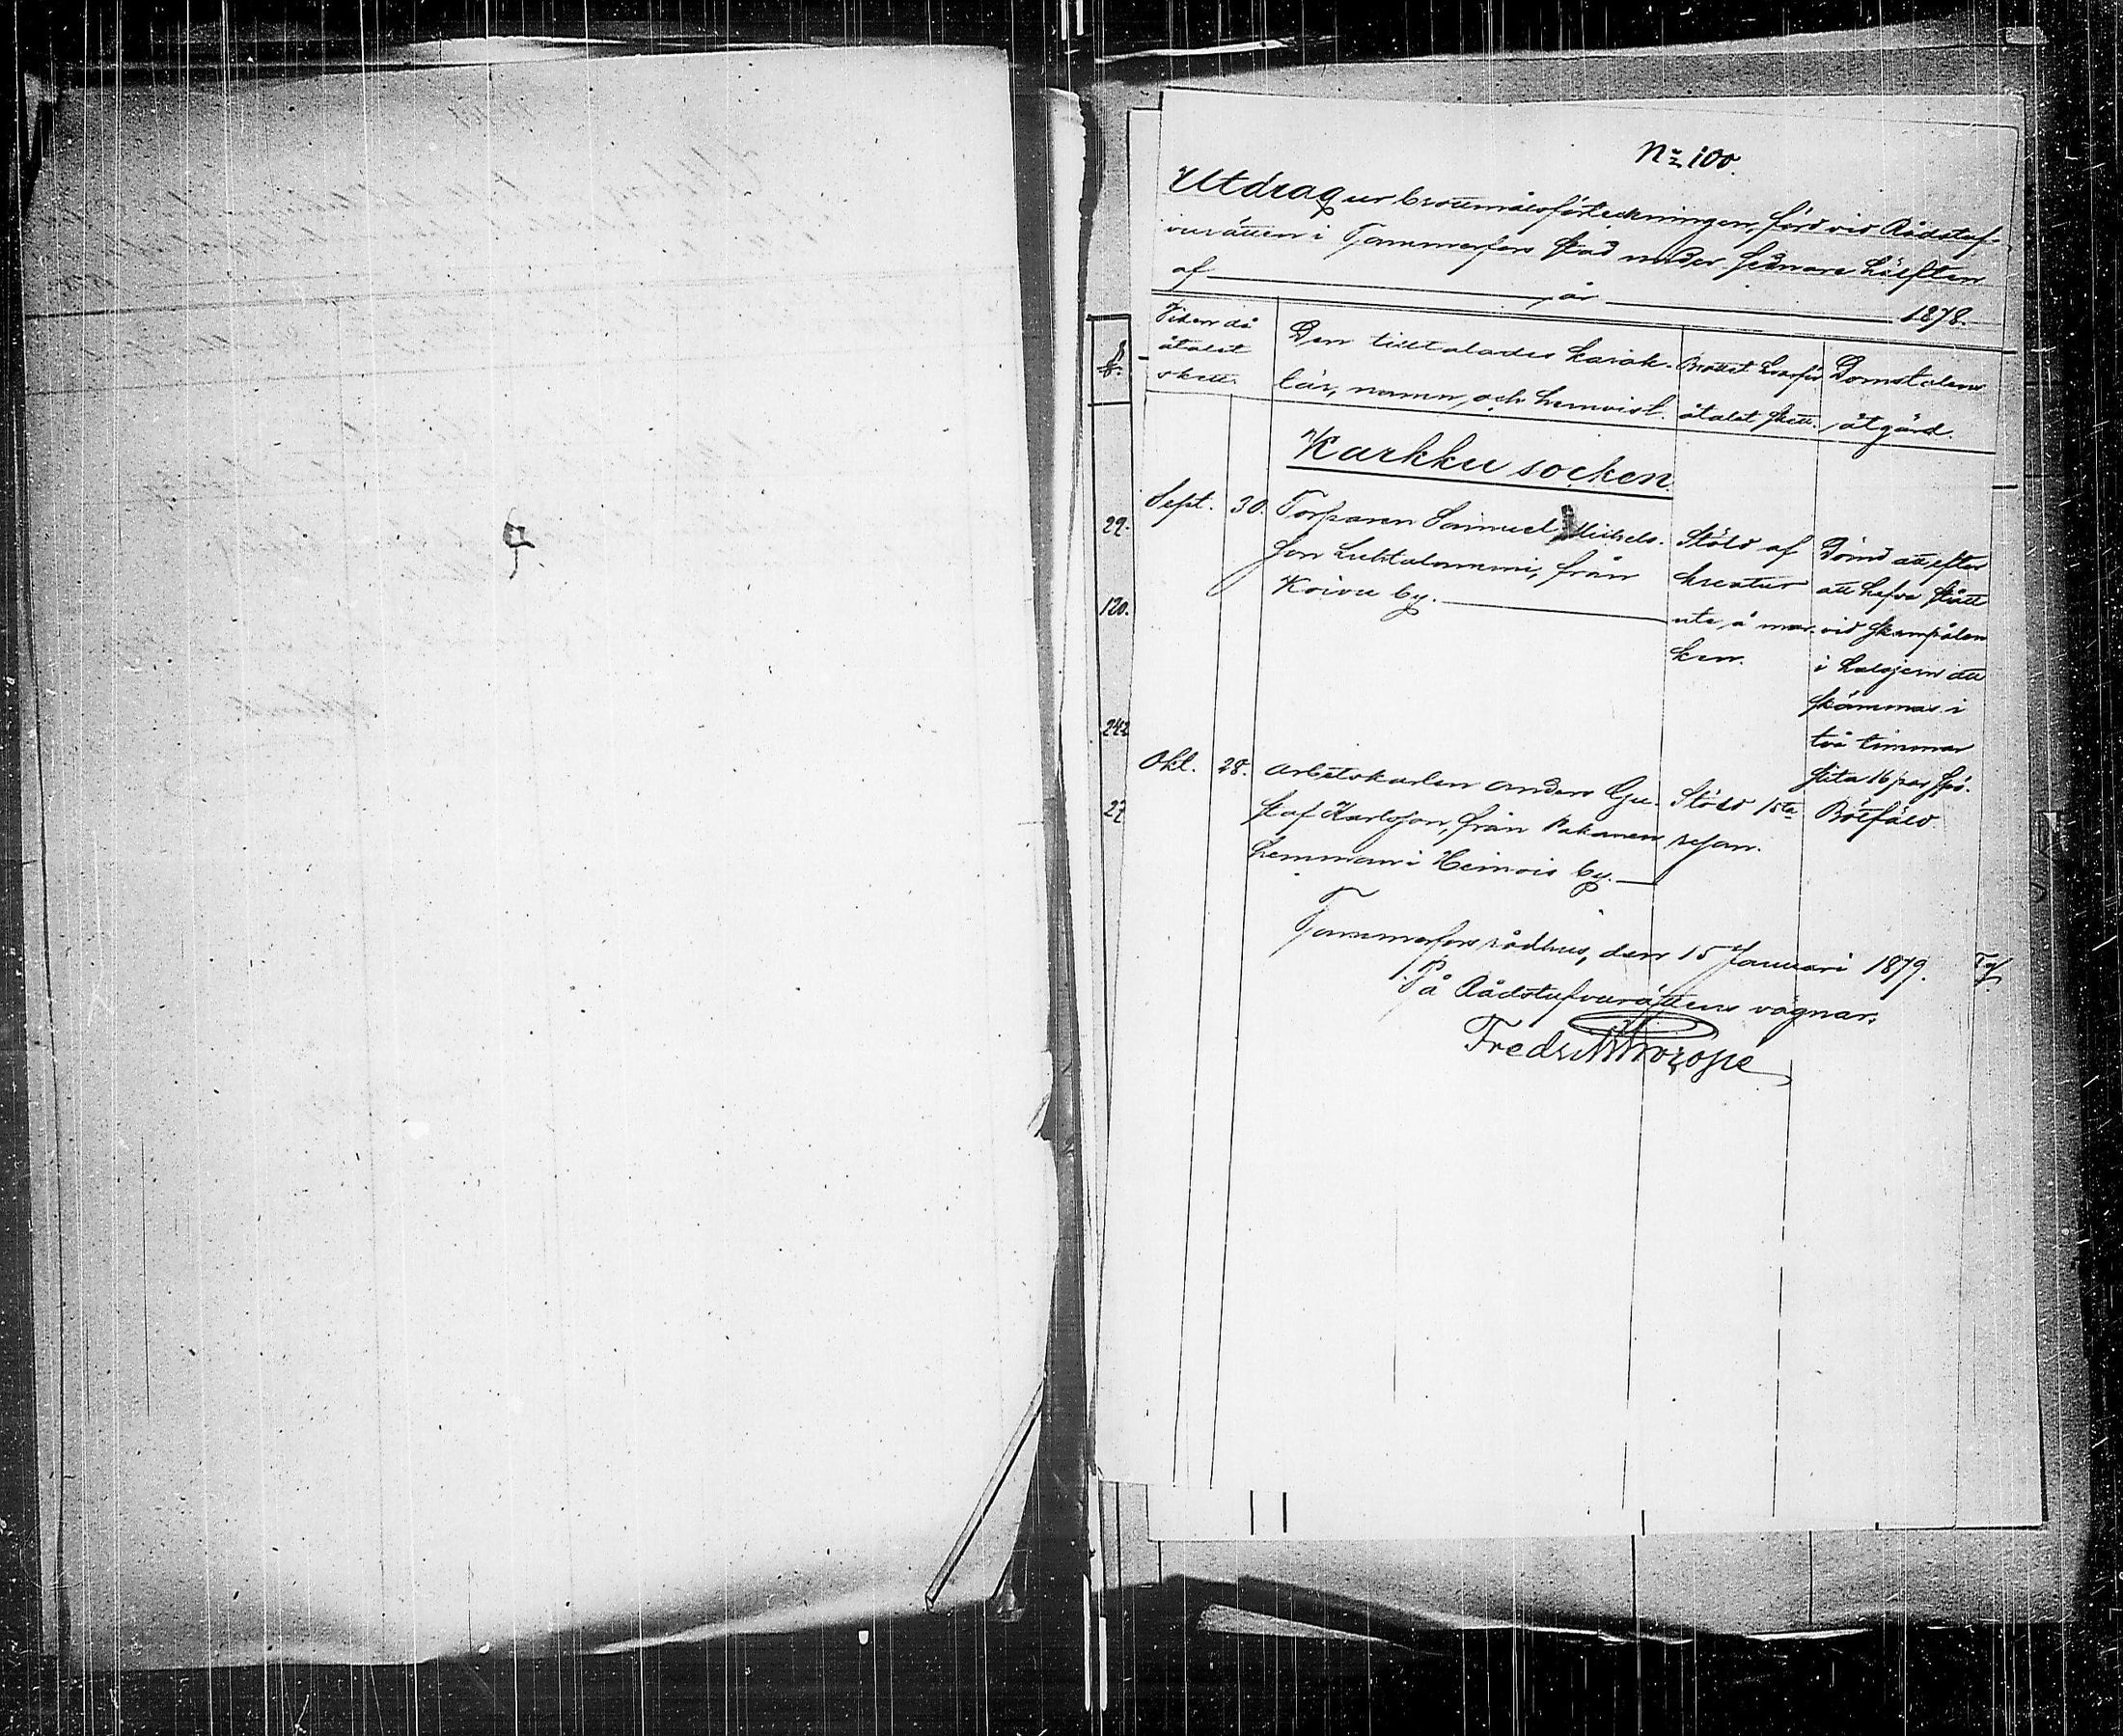 No 100.
Utdrag ur brottmålsförteckningen, förd vid Rådstuf-
vurätten i Tammerfors stad under sednare hälften
af år 1878.
Tiden då
åtalet
skett.
Den tilltalades karak-
tär, namn, och hemvist.
Brottet hvarför
åtalet skett.
Domstolens
åtgärd.
Karkku socken.
29.
Sept. 30.
Torparen Samuel Michels-
son Luhtalammi, från
Koivu by.
Stöld af
kreatur
ute å mar-
ken.
Dömd att efter
att hafva stått
vid skampålen
i halsjern att
skämmas i
två timmar
slita 16 par spö.
120.
242
27
Okt. 28.
Arbetskarlen Anders Gu-
staf Karlsson, från
hemman i Heinois by.
Stöld 1sta
resan.
Bötfäld.
Tammerfors rådhus, den 15 Januari 1879.
På Rådstufvurättens vägnar:
Fredr.